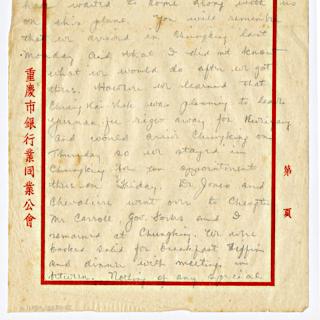 have waited to come along with us
on this plane. You will remember
that we arrived in Chungking last
Monday and that I did not know
what we would do after we got
there. However we learned that
Chiang Kai-shek was planning to leave
right away for
and would arrive Chungking on
Thursday so we stayed in
Chungking for an appointment
there on Friday. Dr. Jones and
Chevalier went over to Chengtu
Mr Carroll Gov. Sorks and I
remained at Chungking. We were
booked solid for breakfast tiffin
and dinner with meetings in
between. Nothing of any special
重慶市銀行業同業公會
第 頁